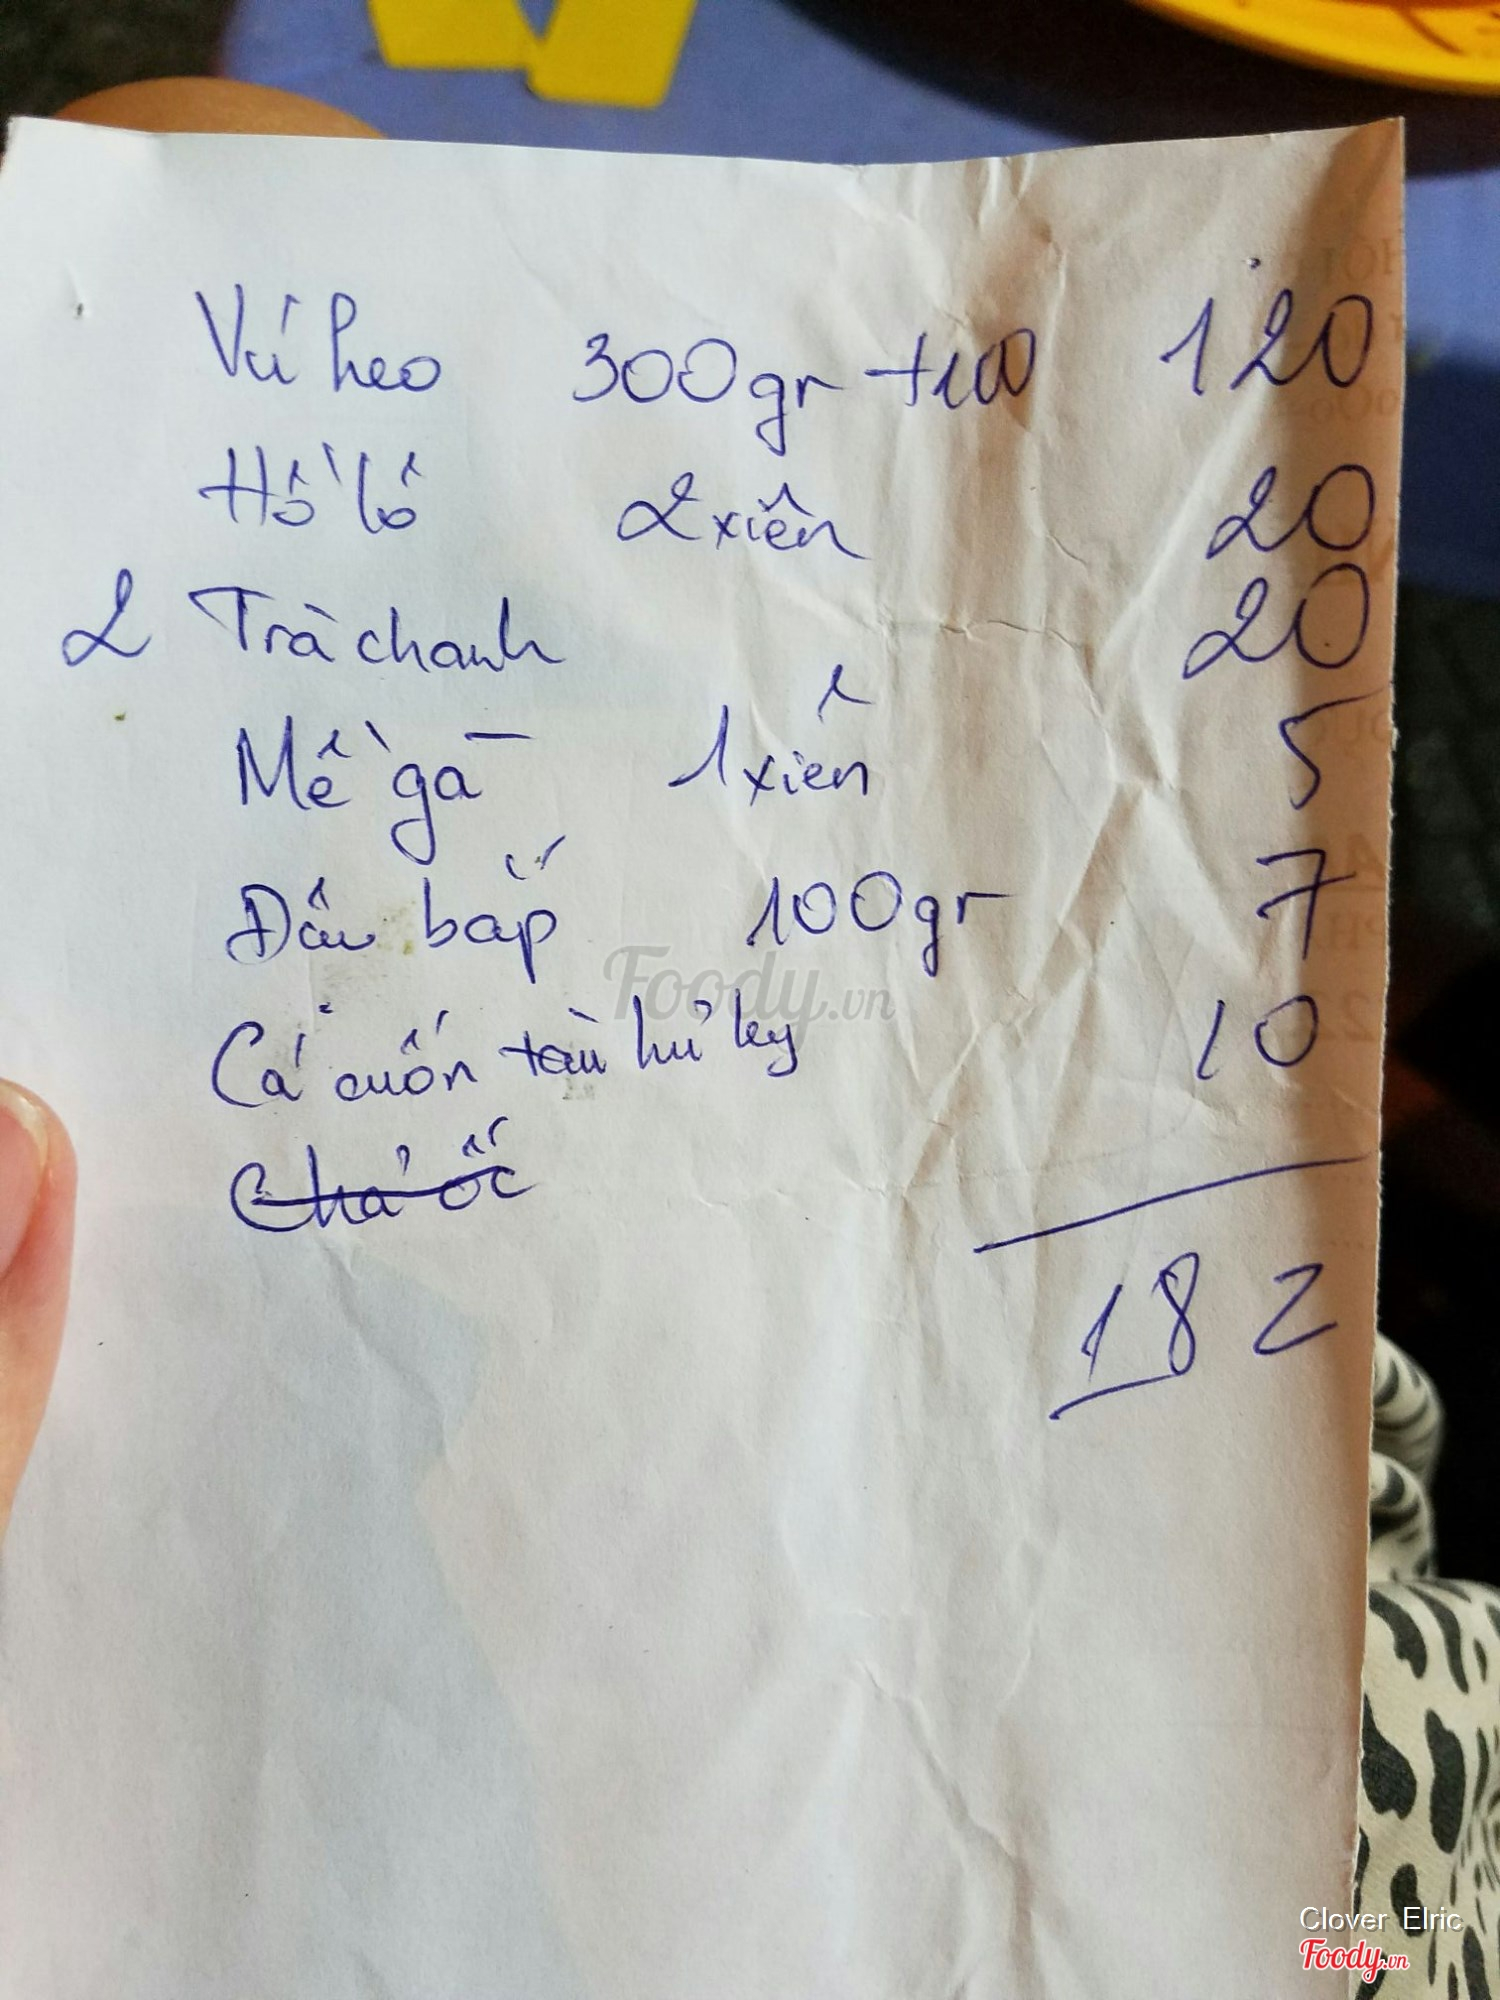 Vú heo 300gr +100 120
Hồ lô 2 xiên 20
2 Trà chanh 20
Mề gà 1 xiên 5
Đậu bắp 100gr 7
Cá cuốn tàu hủ ky 10
Chả ốc
182
Foody.vn
Clover Elric
Foody.vn